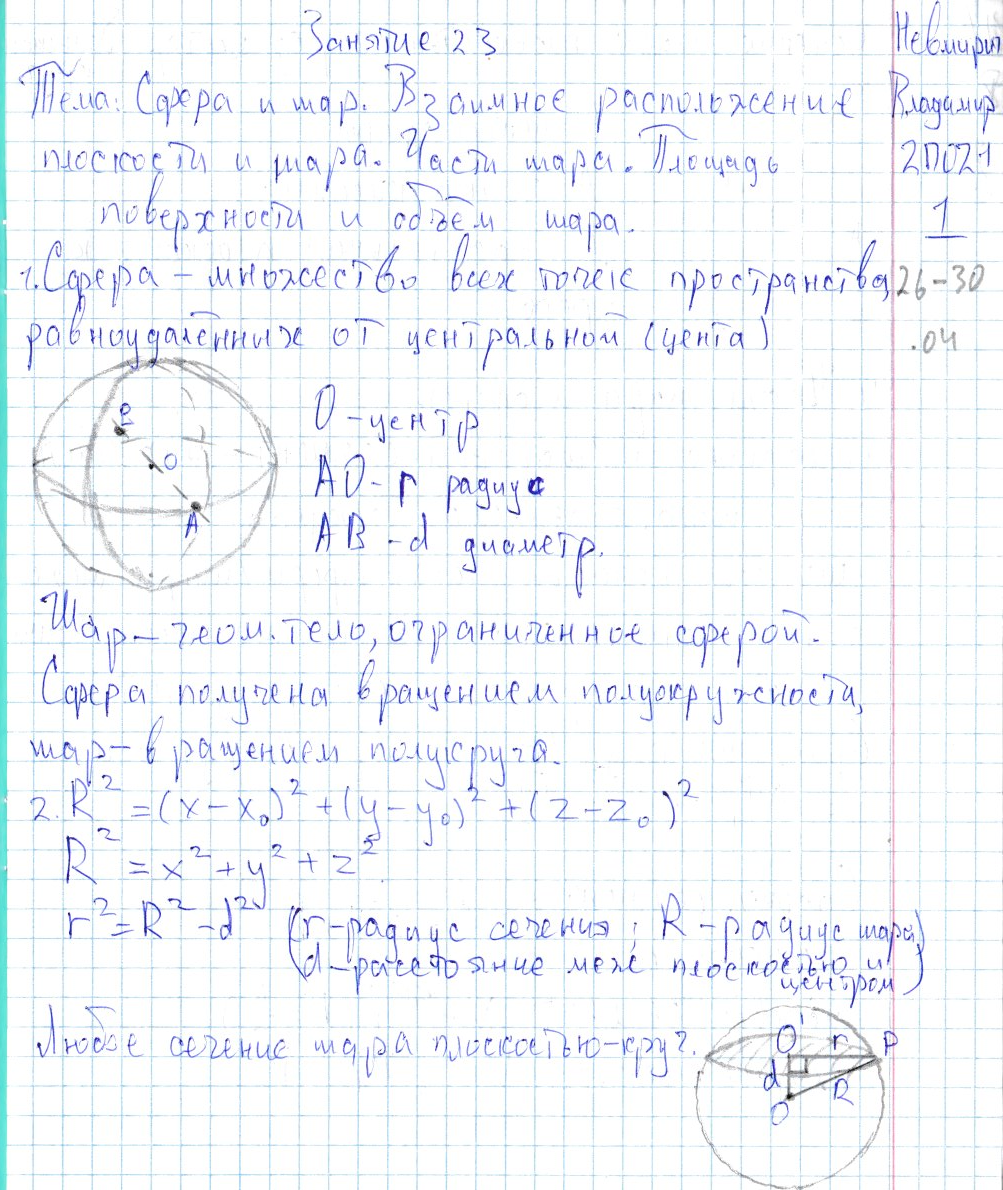 Занятие 23
Невмирич
Тема: Сфера и шар. Взаимное расположение
Владимир
плоскости и шара. Части шара. Площадь
2ПО21
поверхности и объём шара.
1
1. Сфера – множество всех точек пространства,
26-30
равноудалённых от центральной (цента)
.04
B
O
A
O - центр
AO - r радиус
AB - d диаметр.
Шар – геом. тело, ограниченное сферой.
Сфера получена вращением полуокружности,
шар – вращением полукруга.
2. R² = (x - x₀)² + (y - y₀)² + (z - z₀)²
R² = x² + y² + z²
r² = R² - d² (r - радиус сечения; R - радиус шара
d - расстояние меж плоскостью и
центром)
Любое сечение шара плоскостью - круг.
O' r P
d
R
O